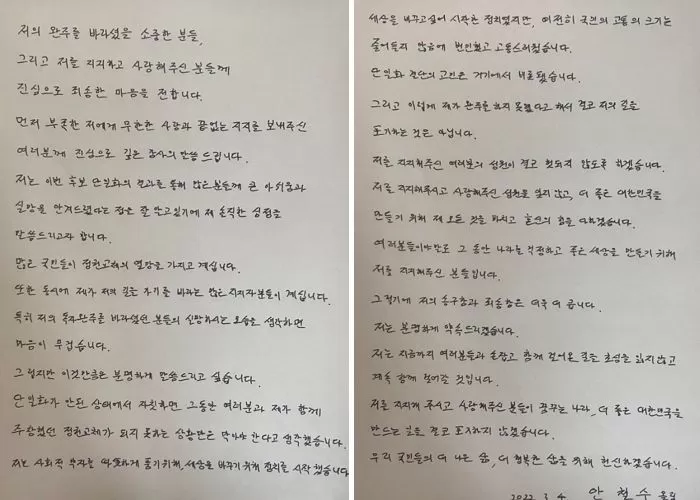 저의 완주를 바라셨을 소중한 분들,
그리고 저를 지지하고 사랑해주신 분들께
진심으로 죄송한 마음을 전합니다.
먼저 부족한 저에게 무한한 사랑과 끝없는 지지를 보내주신
여러분께 진심으로 깊은 감사의 말씀 드립니다.
저는 이번 후보 단일화의 결과를 통해 많은분들께 큰 아쉬움과
실망을 안겨드렸다는 점을 잘 알고있기에 제 솔직한 심정을
말씀드리고자 합니다.
많은 국민들이 정권교체의 열망을 가지고 계십니다.
또한 동시에 제가 저의 길을 가기를 바라는 많은 지지자분들이 계십니다.
특히 저의 독자완주를 바라셨던 분들의 실망하시는 모습을 생각하면
마음이 무겁습니다.
그렇지만 이것만큼은 분명하게 말씀드리고 싶습니다.
단일화가 안된 상태에서 자칫하면 그동안 여러분과 제가 함께
주장했던 정권교체가 되지 못하는 상황만은 막아야 한다고 생각했습니다.
저는 사회적 약자를 따뜻하게 품기위해, 세상을 바꾸기 위해 정치를 시작했습니다.
세상을 바꾸고싶어 시작한 정치였지만, 여전히 국민의 고통의 크기는
줄어들지 않음에 번민했고 고통스러웠습니다.
단일화 결단의 고민은 거기에서 비롯됐습니다.
그리고 이렇게 제가 완주를 하지 못했다고 해서 결코 저의 길을
포기하는 것은 아닙니다.
저를 지지해주신 여러분의 성원이 결코 헛되지 않도록 하겠습니다.
저를 지지해주시고 사랑해주신 성원을 잊지 않고, 더 좋은 대한민국을
만들기 위해 제 모든 것을 바치고 혼신의 힘을 다하겠습니다.
여러분들이야말로 그 동안 나라를 걱정하고 좋은 세상을 만들기 위해
저를 지지해주신 분들입니다.
그렇기에 저의 송구함과 죄송함은 더욱 더 큽니다.
저는 분명하게 약속드리겠습니다.
저는 지금까지 여러분들과 손잡고 함께 걸어온 길을 초심을 잃지않고
계속 함께 걸어갈 것입니다.
저를 지지해 주시고 사랑해주신 분들이 꿈꾸는 나라, 더 좋은 대한민국을
만드는 길을 결코 포기하지 않겠습니다.
우리 국민들의 더 나은 삶, 더 행복한 삶을 위해 헌신하겠습니다.
2022. 3. 4 안 철 수 올림